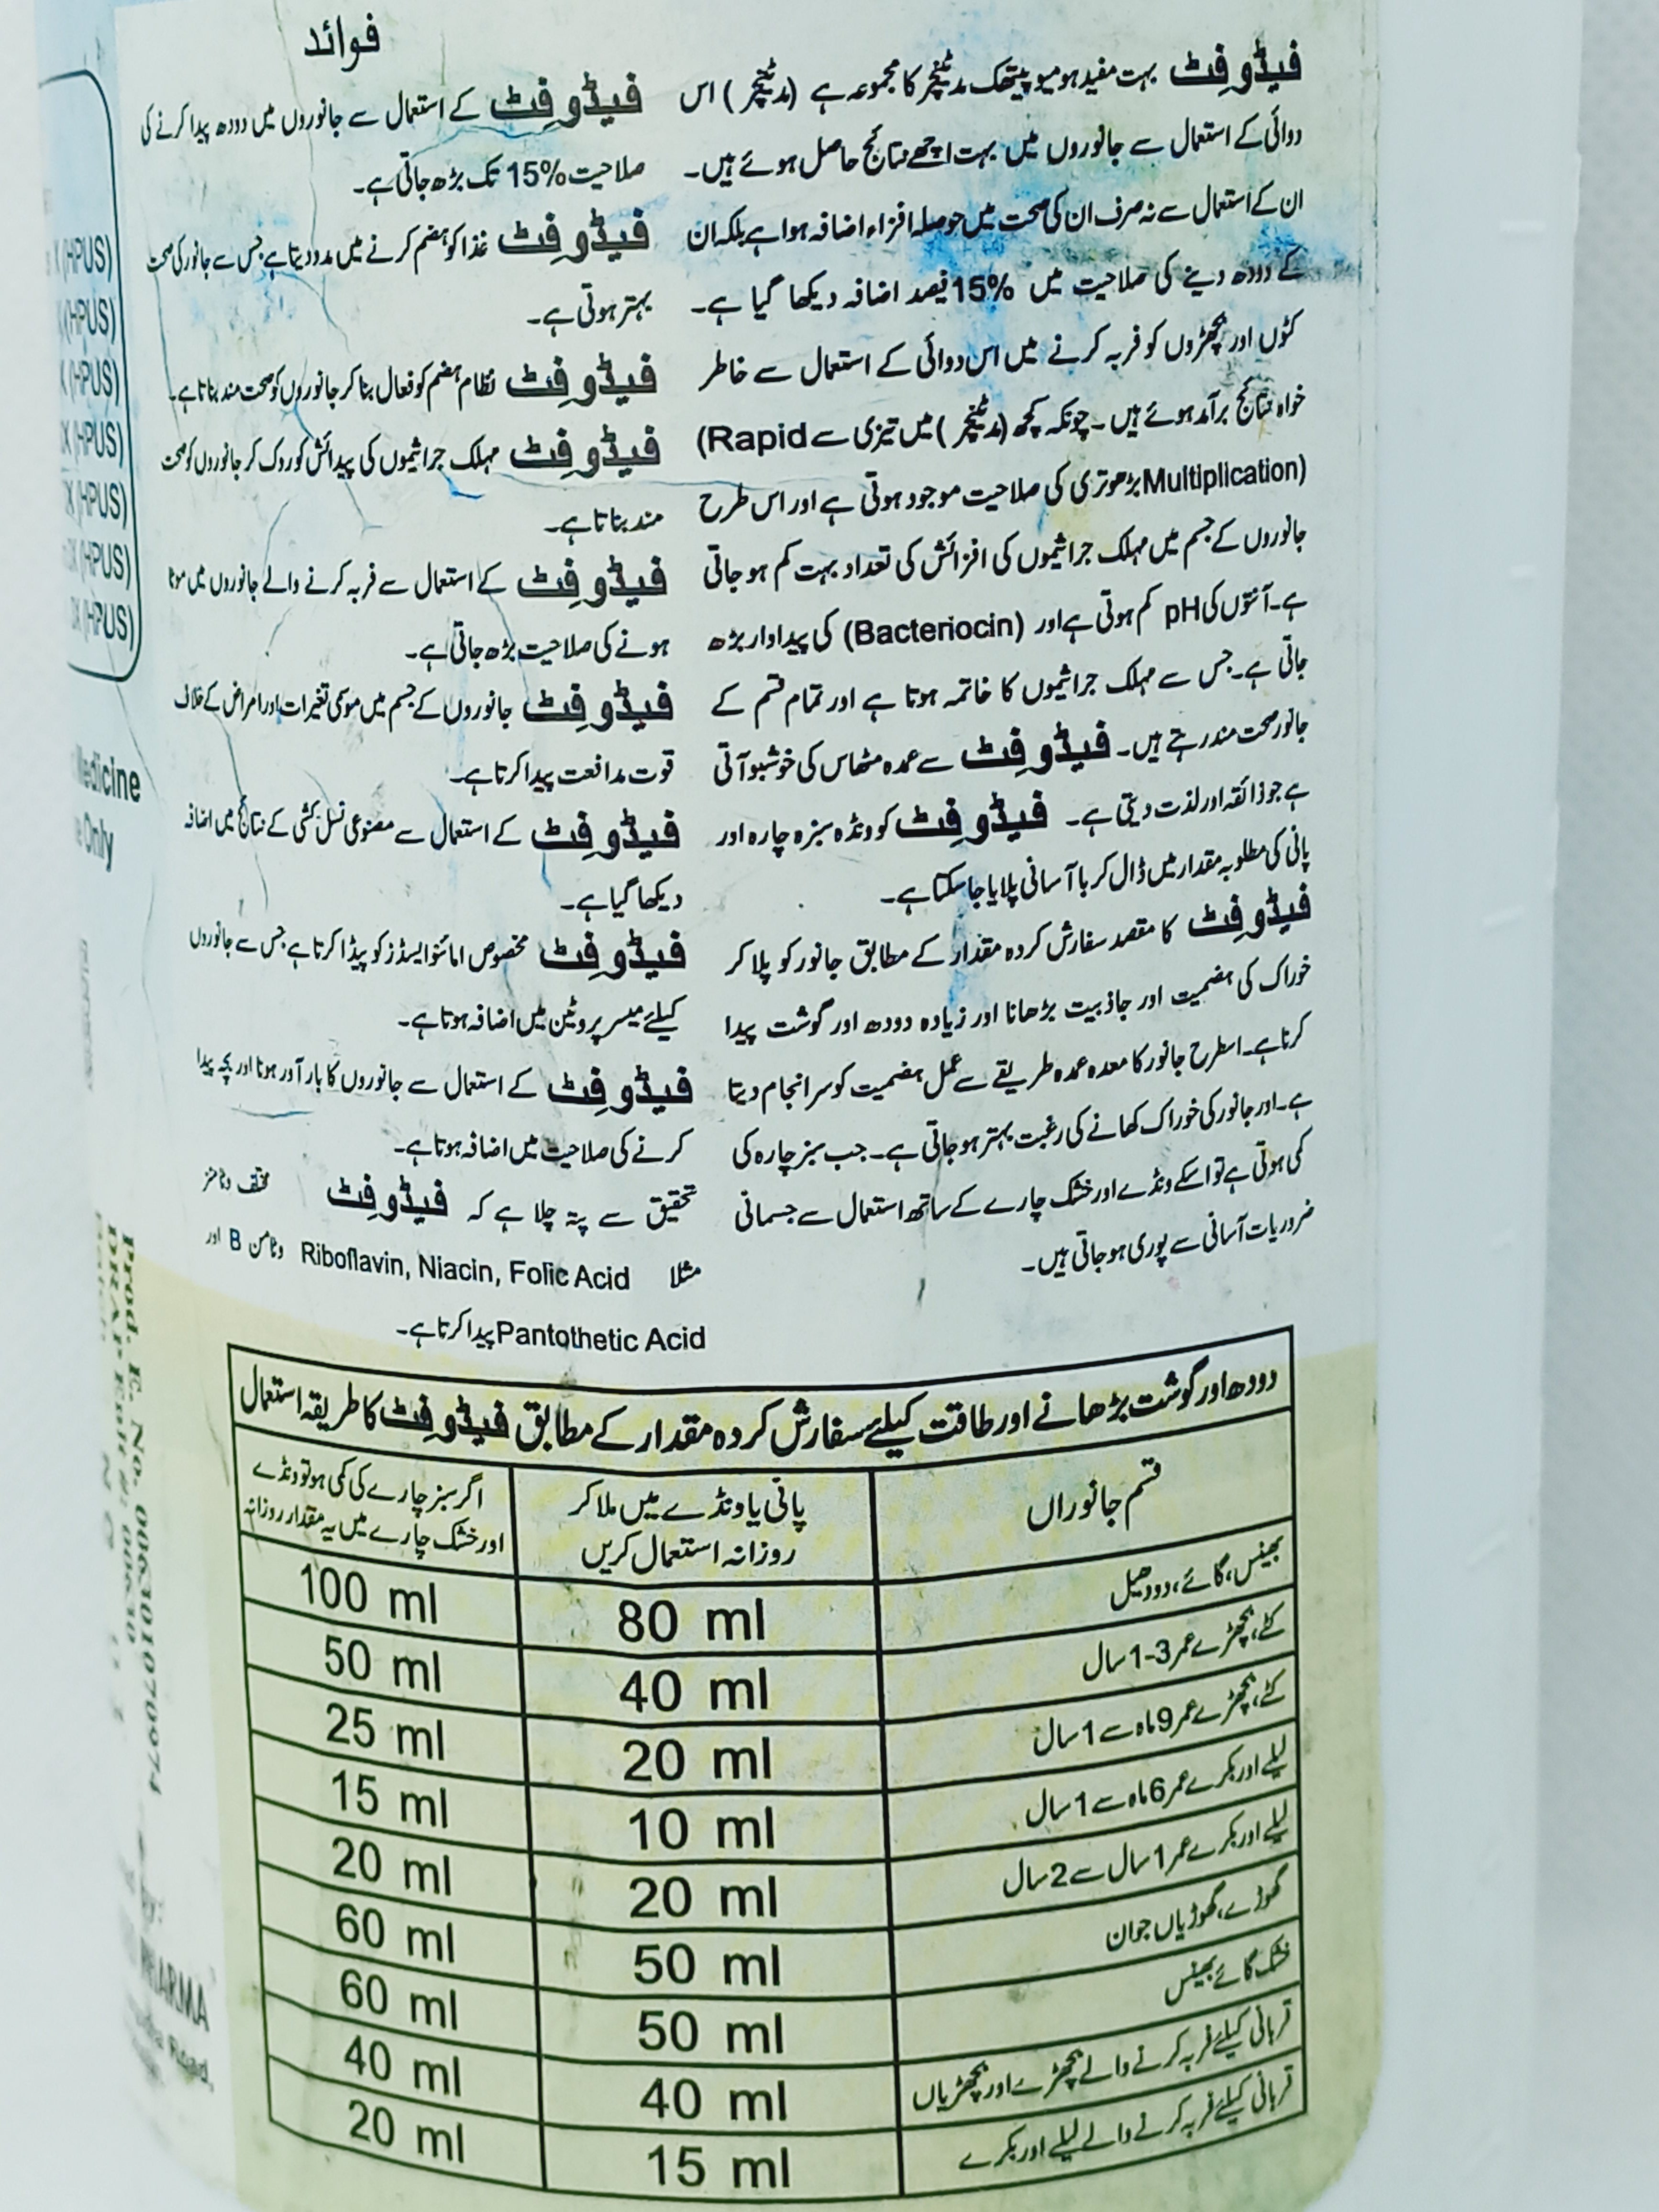 فیڈو فِٹ بہت مفید ہومیو پیتھک مدٹینچر کا مجموعہ ہے (مدٹینچر) اس
دوائی کے استعمال سے جانوروں میں بہت اچھے نتائج حاصل ہوئے ہیں۔
ان کے استعمال سے نہ صرف ان کی صحت میں حوصلہ افزاء اضافہ ہوا ہے بلکہ ان
کے دودھ دینے کی صلاحیت میں 15% فیصد اضافہ دیکھا گیا ہے۔
کٹوں اور بچھڑوں کو فربہ کرنے میں اس دوائی کے استعمال سے خاطر
خواہ نتائج برآمد ہوئے ہیں۔ چونکہ کچھ (مدٹینچر) میں تیزی سے (Rapid
Multiplication) بڑھوتری کی صلاحیت موجود ہوتی ہے اور اس طرح
جانوروں کے جسم میں مہلک جراثیموں کی افزائش کی تعداد بہت کم ہو جاتی
ہے۔ آنتوں کی pH کم ہوتی ہے اور (Bacteriocin) کی پیداوار بڑھ
جاتی ہے۔ جس سے مہلک جراثیموں کا خاتمہ ہوتا ہے اور تمام قسم کے
جانور صحت مند رہتے ہیں۔ فیڈو فِٹ سے عمدہ مٹھاس کی خوشبو آتی
ہے جو ذائقہ اور لذت دیتی ہے۔ فیڈو فِٹ کو ونڈہ سبزہ چارہ اور
پانی کی مطلوبہ مقدار میں ڈال کر باآسانی پلایا جا سکتا ہے۔
فیڈو فِٹ کا مقصد سفارش کردہ مقدار کے مطابق جانور کو پلا کر
خوراک کی ہضمیت اور جاذبیت بڑھانا اور زیادہ دودھ اور گوشت پیدا
کرتا ہے۔ اسطرح جانور کا معدہ عمدہ طریقے سے عمل ہضمیت کو سرانجام دیتا
ہے۔ اور جانور کی خوراک کھانے کی رغبت بہتر ہو جاتی ہے۔ جب سبز چارہ کی
کمی ہوتی ہے تو اسکے ونڈے اور خشک چارے کے ساتھ استعمال سے جسمانی
ضروریات آسانی سے پوری ہو جاتی ہیں۔
فوائد
فیڈو فِٹ کے استعمال سے جانوروں میں دودھ پیدا کرنے کی
صلاحیت 15% تک بڑھ جاتی ہے۔
فیڈو فِٹ غذا کو ہضم کرنے میں مدد دیتا ہے جس سے جانور کی صحت
بہتر ہوتی ہے۔
فیڈو فِٹ نظام ہضم کو فعال بنا کر جانوروں کو صحت مند بناتا ہے۔
فیڈو فِٹ مہلک جراثیموں کی پیدائش کو روک کر جانوروں کو صحت
مند بناتا ہے۔
فیڈو فِٹ کے استعمال سے فربہ کرنے والے جانوروں میں موٹا
ہونے کی صلاحیت بڑھ جاتی ہے۔
فیڈو فِٹ جانوروں کے جسم میں موسمی تغیرات اور امراض کے خلاف
قوت مدافعت پیدا کرتا ہے۔
فیڈو فِٹ کے استعمال سے مصنوعی نسل کشی کے نتائج میں اضافہ
دیکھا گیا ہے۔
فیڈو فِٹ مخصوص امائنو ایسڈز کو پیڈا کرتا ہے جس سے جانوروں
کیلئے میسر پروٹین میں اضافہ ہوتا ہے۔
فیڈو فِٹ کے استعمال سے جانوروں کا بار آور ہونا اور بچہ پیدا
کرنے کی صلاحیت میں اضافہ ہوتا ہے۔
تحقیق سے پتہ چلا ہے کہ فیڈو فِٹ مختلف وٹامنز
مثلا Riboflavin, Niacin, Folic Acid وٹامن B اور
Pantothetic Acid پیدا کرتا ہے۔
دودھ اور گوشت بڑھانے اور طاقت کیلئے سفارش کردہ مقدار کے مطابق فیڈو فِٹ کا طریقہ استعمال
قسم جانوراں پانی یا ونڈے میں ملا کر روزانہ استعمال کریں اگر سبز چارے کی کمی ہو تو ونڈے اور خشک چارے میں یہ مقدار روزانہ
بھینس، گائے، دودھیل 80 ml 100 ml
کٹے، بچھڑے عمر 3-1 سال 40 ml 50 ml
کٹے، بچھڑے عمر 9 ماہ سے 1 سال 20 ml 25 ml
لیلے اور بکرے عمر 6 ماہ سے 1 سال 10 ml 15 ml
لیلے اور بکرے عمر 1 سال سے 2 سال 20 ml 20 ml
گھوڑے، گھوڑیاں جوان 50 ml 60 ml
خشک گائے بھینس 50 ml 60 ml
قربانی کیلئے فربہ کرنے والے بچھڑے اور بچھڑیاں 40 ml 40 ml
قربانی کیلئے فربہ کرنے والے لیلے اور بکرے 15 ml 20 ml
X (HPUS)
X (HPUS)
X (HPUS)
0X (HPUS)
0X (HPUS)
0X (HPUS)
0X (HPUS)
Medicine
Only
Prod. E. No. 006301070974
DRAP Enlt #: 00630
PHARMA
Road,